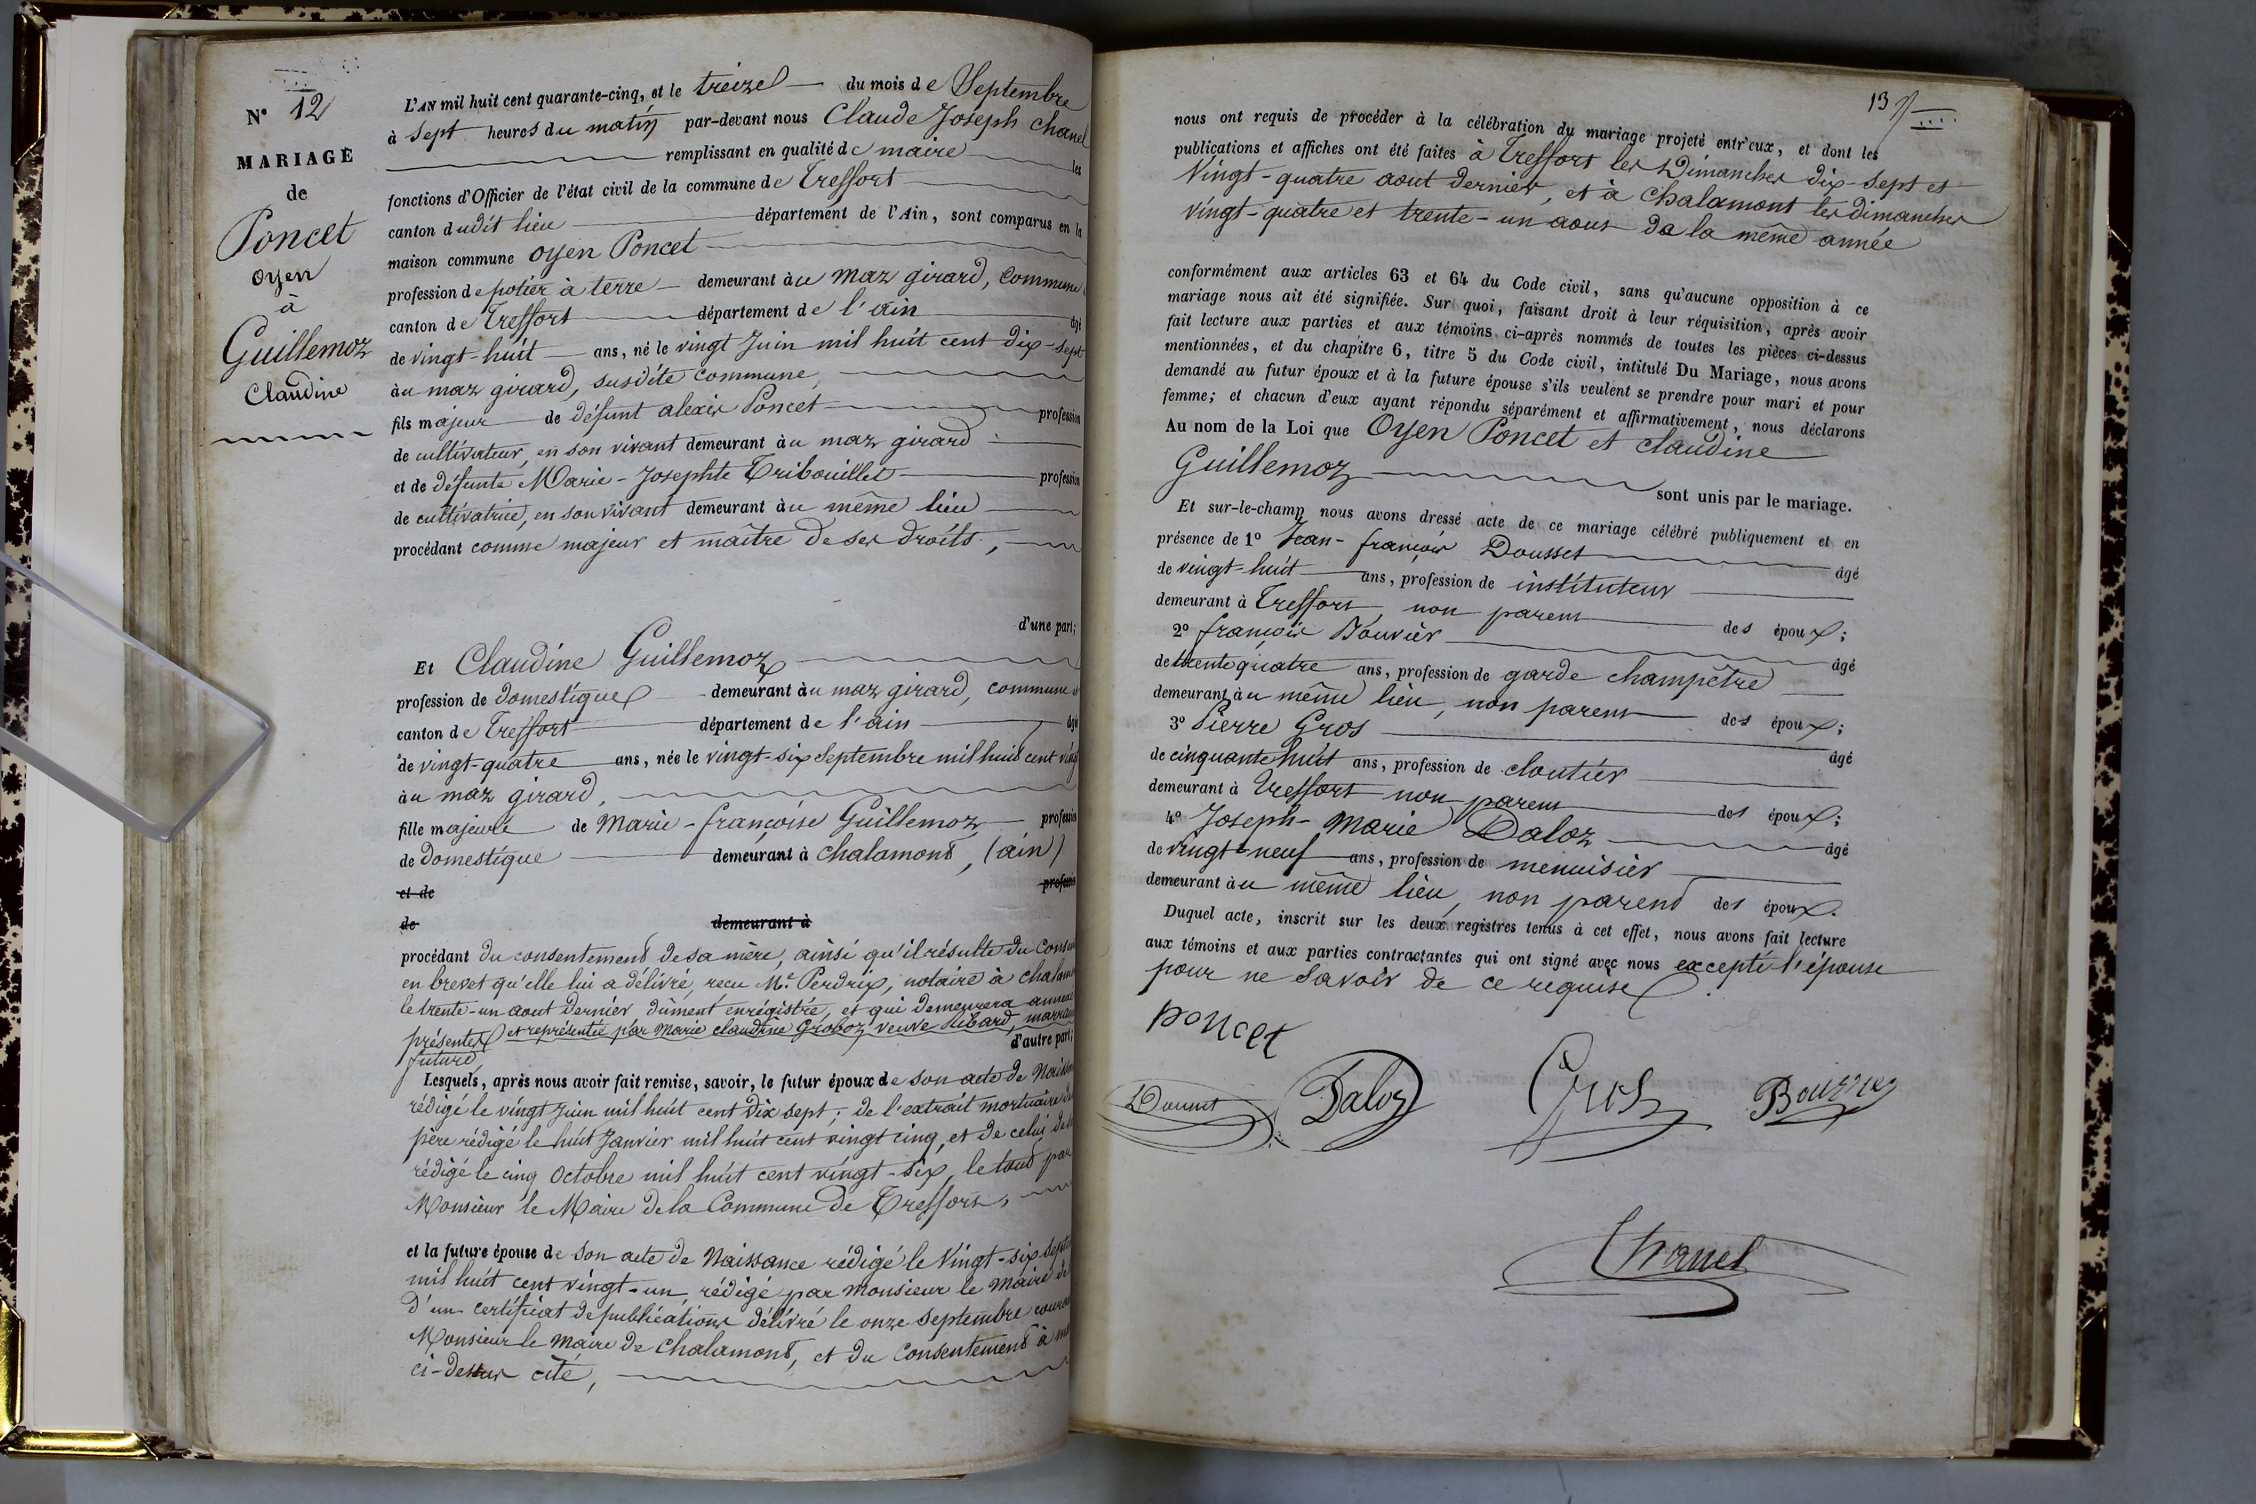 N° 12
MARIAGE
de
Poncet
oyen
à
Guillemoz
Claudine
L'AN mil huit cent quarante-cinq, et le treize du mois de Septembre
à sept heures du matin par-devant nous Claude Joseph Chanel
remplissant en qualité de maire les
fonctions d'Officier de l'état civil de la commune de Treffort
canton dudit lieu département de l'Ain, sont comparus en la
maison commune oyen Poncet
profession de potier à terre demeurant au maz girard, commune
canton de Treffort département de l'ain âgé
de vingt-huit ans, né le vingt Juin mil huit cent dix-sept
au maz girard, susdite commune,
fils majeur de défunt alexis Poncet profession
de cultivateur, en son vivant demeurant au maz girard
et de défunte Marie-Josephte Tribouillet profession
de cultivatrice, en son vivant demeurant au même lieu
procédant comme majeur et maître de ses droits,
d'une part;
Et Claudine Guillemoz
profession de domestique demeurant au maz girard, commune
canton de Treffort département de l'ain âgé
de vingt-quatre ans, née le vingt-six Septembre mil huit cent vingt
au maz girard,
fille majeure de Marie-françoise Guillemoz profession
de domestique demeurant à chalamont, (ain)
et de profession
de demeurant à
procédant du consentement de sa mère, ainsi qu'il résulte du
en brevet qu'elle lui a délivré, recu Me. Perdrix, notaire à
le trente-un aout dernier dûment enrégistré, et qui demeurera
présentes et représentée par Marie claudine Groboz veuve
d'autre part;
future,
Lesquels, après nous avoir fait remise, savoir, le futur époux de son acte de
rédigé le vingt Juin mil huit cent dix sept; de l'extrait mortuaire
père rédigé le huit Janvier mil huit cent vingt cinq, et de celui
rédigé le cinq Octobre mil huit cent vingt-six, le tout par
Monsieur le Maire de la Commune de Treffort,
et la future épouse de son acte de Naissance rédigé le Vingt-six
mil huit cent vingt-un, rédigé par Monsieur le Maire
d'un certificat de publications délivré le onze Septembre
Monsieur le maire de Chalamont, et du consentement à
ci-dessus cité,
13
nous ont requis de procéder à la célébration du mariage projeté entr'eux, et dont les
publications et affiches ont été faites à Treffort les Dimanches dix-sept et
Vingt-quatre aout dernier, et à Chalamont les dimanches
vingt-quatre et trente-un aout de la même année
conformément aux articles 63 et 64 du Code civil, sans qu'aucune opposition à ce
mariage nous ait été signifiée. Sur quoi, faisant droit à leur réquisition, après avoir
fait lecture aux parties et aux témoins ci-après nommés de toutes les pièces ci-dessus
mentionnées, et du chapitre 6, titre 5 du Code civil, intitulé Du Mariage, nous avons
demandé au futur époux et à la future épouse s'ils veulent se prendre pour mari et pour
femme; et chacun d'eux ayant répondu séparément et affirmativement, nous déclarons
Au nom de la Loi que Oyen Poncet et claudine
Guillemoz
sont unis par le mariage.
Et sur-le-champ nous avons dressé acte de ce mariage célébré publiquement et en
présence de 1° Jean-françois Dousset âgé
de vingt-huit ans, profession de instituteur
demeurant à Treffort, non parent des époux;
2° françois Bouvier âgé
de trente quatre ans, profession de garde champêtre
demeurant au même lieu, non parent des époux;
3° Pierre Gros âgé
de cinquante huit ans, profession de cloutier
demeurant à Treffort non parent des époux;
4° Joseph-Marie Daloz âgé
de vingt-neuf ans, profession de menuisier
demeurant au même lieu, non parent des époux.
Duquel acte, inscrit sur les deux registres tenus à cet effet, nous avons fait lecture
aux témoins et aux parties contractantes qui ont signé avec nous excepté l'épouse
pour ne savoir de ce requise.
Poncet
Dousset Daloz Gros Bouvier
Chanel